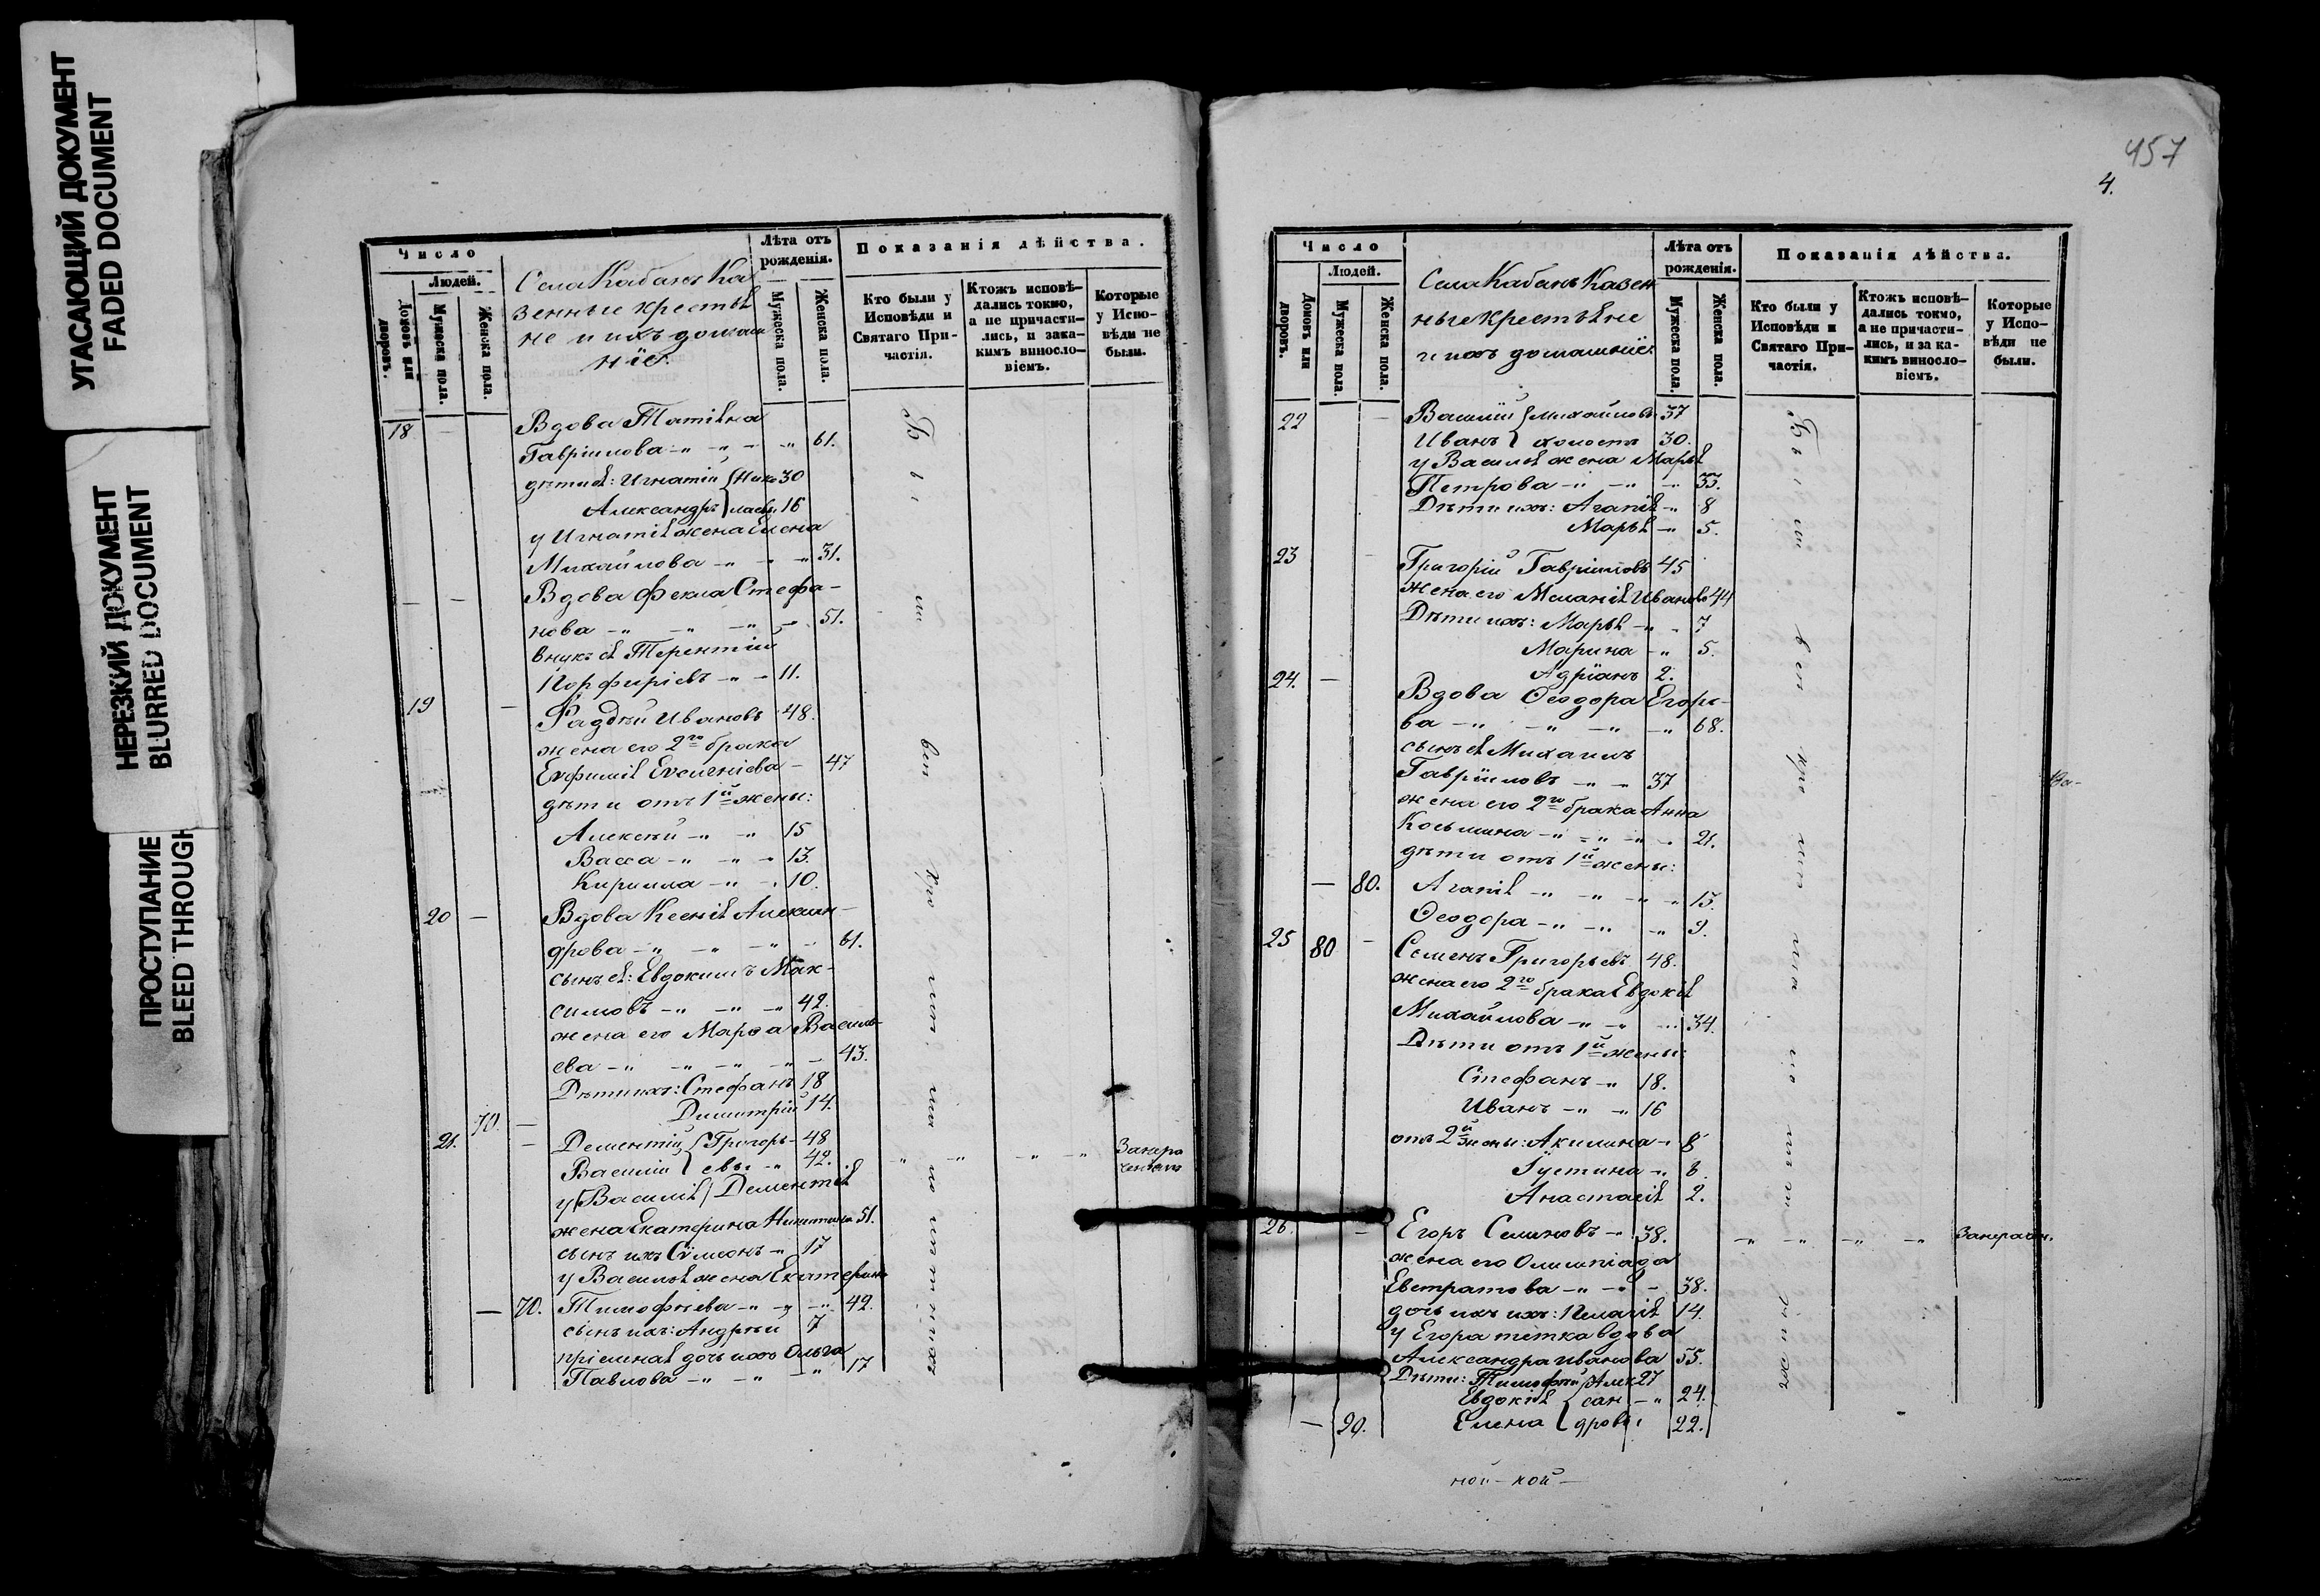 УГАСАЮЩИЙ ДОКУМЕНТ
FADED DOCUMENT
НЕРЕЗКИЙ ДОКУМЕНТ
BLURRED DOCUMENT
ПРОСТУПАНИЕ
BLEED THROUGH
Число
Людей.
Домовъ или дворовъ.
Мужеска пола.
Женска пола.
Села Кабанъ Ка
зенные крестья
не и ихъ домаш
ніе.
Лѣта отъ рожденія.
Мужеска пола.
Женска пола.
Показанія дѣйства.
Кто были у Исповѣди и Святаго Причастія.
Ктожъ исповѣ-
дались токмо,
а не причасти-
лись, и зака-
кимъ винословіемъ.
Которые
у Испо-
вѣди не
были.
18 Вдова Татіяна
Гавріилова 61.
дѣти ея: Игнатій Нико 30
Александръ лаевы 16
у Игнатія жена Елена
Михайлова 31.
Вдова Фекла Стефа-
нова 51.
внукъ ея Терентій
Порфиріевъ 11.
19 Фаддѣй Ивановъ 48.
жена его 2го брака
Евфимія Евсигніева 47
дѣти отъ 1й жены:
Алексѣй 15
Васса 13.
Кирилла 10.
20 Вдова Ксенія Алексан-
дрова 61.
сынъ ея: Евдокимъ Мак-
симовъ 42.
жена его Марѳа Василь-
ева 43.
Дѣти ихъ: Стефанъ 18
70. Димитрій 14.
21. Дементій Григорь- 48
Василій евы 42.
у Василія Дементія
жена Екатерина Никитина 51.
сынъ ихъ Сѵмеонъ 17
у Василія жена Екатерина
70. Тимофѣева 42.
сынъ ихъ: Андрѣй 7
пріемная дочь ихъ Ольга
Павлова 17
457
4.
Число
Людей.
Домовъ или дворовъ.
Мужеска пола.
Женска пола.
Села Кабанъ Казен
ные крестьяне
и ихъ домашніе.
Лѣта отъ рожденія.
Мужеска пола.
Женска пола.
Показанія дѣйства.
Кто были у
Исповѣди и
Святаго При-
частія.
Ктожъ исповѣ-
дались токмо,
а не причасти-
лись, и за ка-
кимъ винословіемъ.
Которые
у Испо-
вѣди не
были.
22 Василій Михайловы 37
Иванъ холостъ 30.
у Василія жена Марья
Петрова 33.
Дѣти ихъ: Агапія 8
Марья 5.
23 Григорій Гавриловъ 45
жена его Меланія Иванова 44
Дѣти ихъ: Марья 7
Марина 5.
Адріанъ 2.
24. Вдова Ѳеодора Егоро-
ва 68.
сынъ ея Михаилъ
Гавріиловъ 37
жена его 2го брака Анна
Косьмина 21.
дѣти отъ 1й жены:
80. Агапія 15.
Ѳеодора 9.
25 80 Семенъ Григорьевъ 48.
жена его 2го брака Евдокія
Михайлова 34.
Дѣти отъ 1й жены:
Стефанъ 18.
Иванъ 16
отъ 2й жены: Акилина 8
Іустина 6
Анастасія 2.
26. Егоръ Семеновъ 38.
жена его Олимпіада
Евстратова 38.
дочь ихъ: Пелагія 14.
у Егора тетка вдова
Александра Иванова 55.
Дѣти: Тимофѣй Алек 27
Евдокія сан 24.
90. Елена дровы 22.
ной-кой